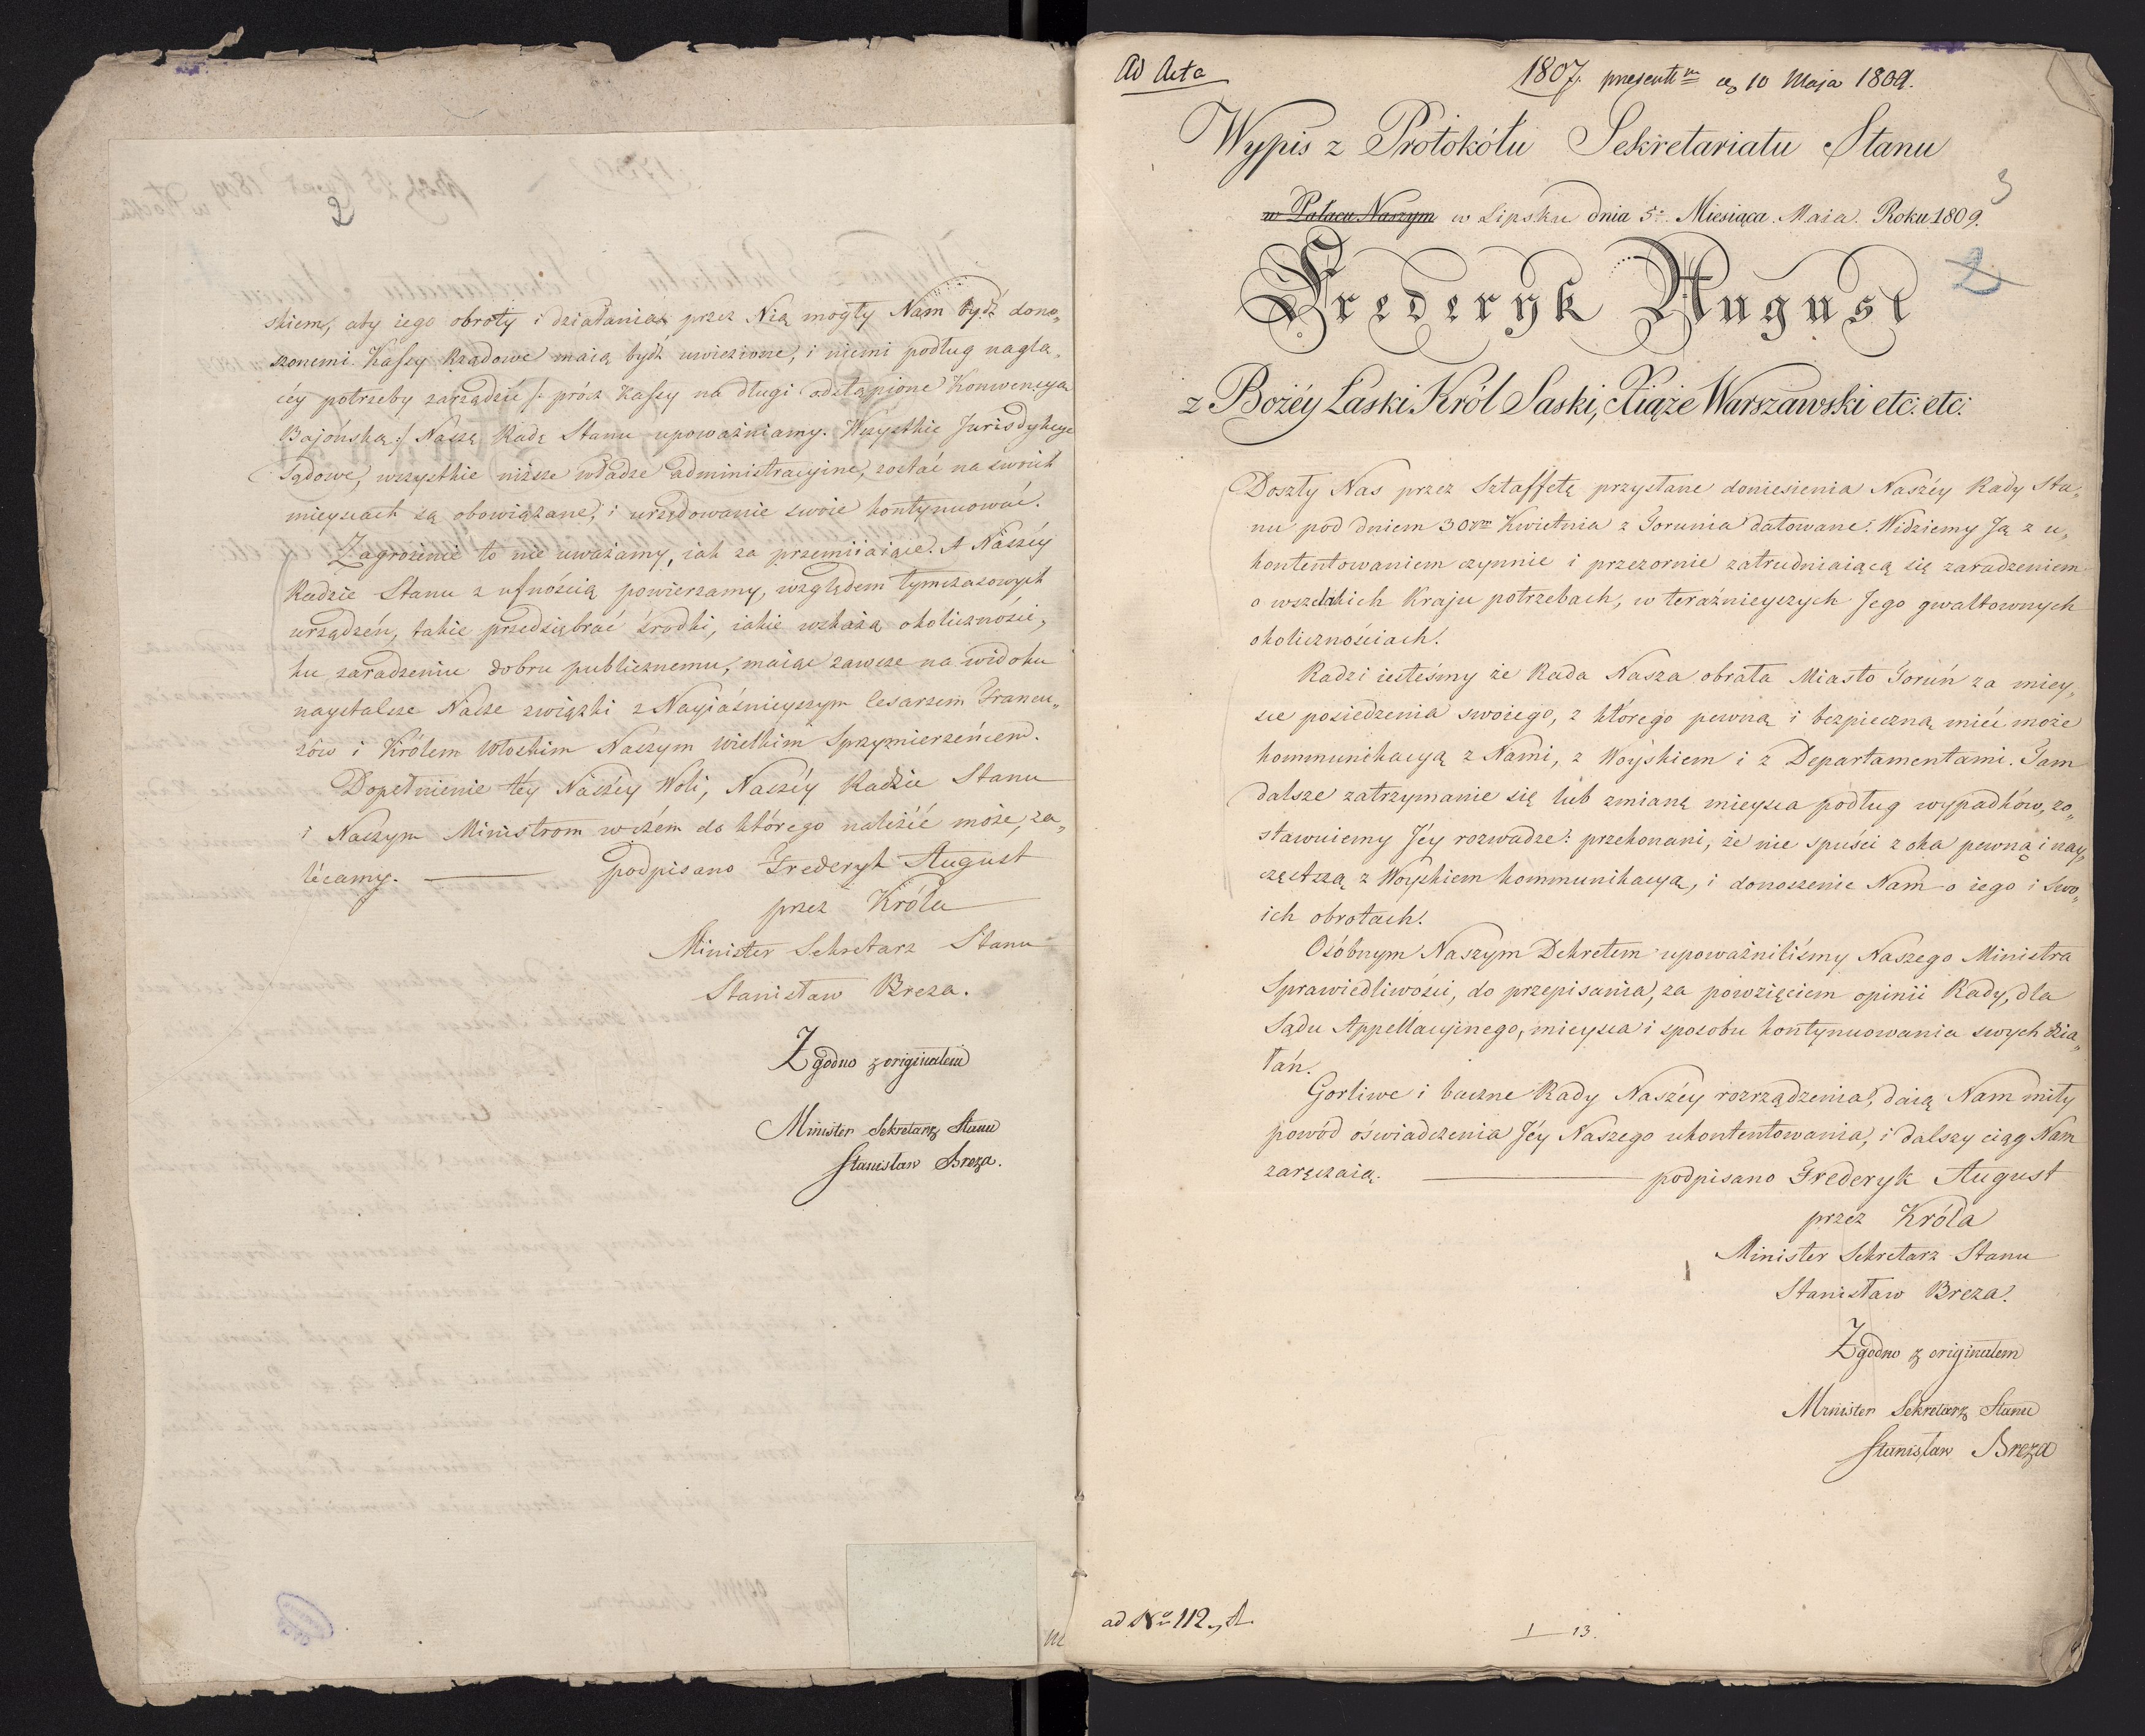 2
skiem, aby iego obroty i działania przez Nią mogły Nam bydź dono„
szonemi. Kassy Rządowe maią bydź uwiezione, i niemi podług nagla„
céy potrzeby zarządzić /: prócz Kassy na długi odstąpione Konwencyą
Bajońską :/ Naszę Radę Stanu upoważniamy. Wszystkie Jurisdykcye
Sądowe, wszystkie niższe władze administracyine, zostać na swoich
mieyscach są obowiązane, i urzędowanie swoie kontynuować.
Zagrożenie to nie uważamy, iak za przemiiaiące. A Naszéy
Radzie Stanu z ufnością powierzamy, względem tymczasowych
urządzeń, takie przedsiębrać środki, iakie wskażą okoliczności,
ku zaradzeniu dobru publicznemu, maiąc zawsze na widoku
naystalsze Nasze związki z Nayiaśnieyszym Cesarzem Francu„
zów i Królem Włoskim Naszym wielkim Sprzymierzeńcem.
Dopełnienie téy Naszéy Woli, Naszéy Radzie Stanu
i Naszym Ministrom w czém do którego należéć może, za„
lécamy. — podpisano Frederyk August
przez Króla
Minister Sekretarz Stanu
Stanisław Breza.
Zgodno z originałem
Minister Sekretarz Stanu
Stanisław Breza.
Ad Acta
1807. presentm 10 Maja 1809.
Wypis z Protokółu Sekretariatu Stanu
3
w Pałacu Naszym w Lipsku dnia 5. Miesiąca Maia. Roku 1809.
2
Frederyk August
z Bożéy Łaski Król Saski, Xiąże Warszawski etc: etc:
Doszły Nas przez Sztaffetę przysłane doniesienia Naszéy Rady Sta„
nu pod dniem 30m Kwietnia z Torunia datowane. Widziemy Ją z u„
kontentowaniem czynnie i przezornie zatrudniaiącą się zaradzeniem
o wszelkich Kraju potrzebach, w teraźnieyszych Jego gwałtownych
okolicznościach.
Radzi iesteśmy że Rada Nasza obrała Miasto Toruń za miey„
sce posiedzenia swoiego, z którego pewną i bezpieczną mieć może
kommunikacyą z Nami, z Woyskiem i z Departamentami. Tam
dalsze zatrzymanie się lub zmianę mieysca podług wypadków, zo„
stawuiemy Jéy rozwadze: przekonani, że nie spuści z oka pewną i nay„
częstszą z Woyskiem kommunikacyą, i donoszenie Nam o iego i swo„
ich obrotach.
Osóbnym Naszym Dekretem upoważniliśmy Naszego Ministra
Sprawiedliwości, do przepisania, za powzięciem opinii Rady, dla
Sądu Appellacyinego, mieysca i sposobu kontynuowania swych dzia„
łań.
Gorliwe i baczne Rady Naszéy rozrządzenia, daią Nam miły
powód oświadczenia Jéy Naszego ukontentowania, i dalszy ciąg Nam
zaręczaią. — podpisano Frederyk August
przez Króla
Minister Sekretarz Stanu
Stanisław Breza.
Zgodno z originałem
Minister Sekretarz Stanu
Stanisław Breza
ad No 112, A.
1 — 13.